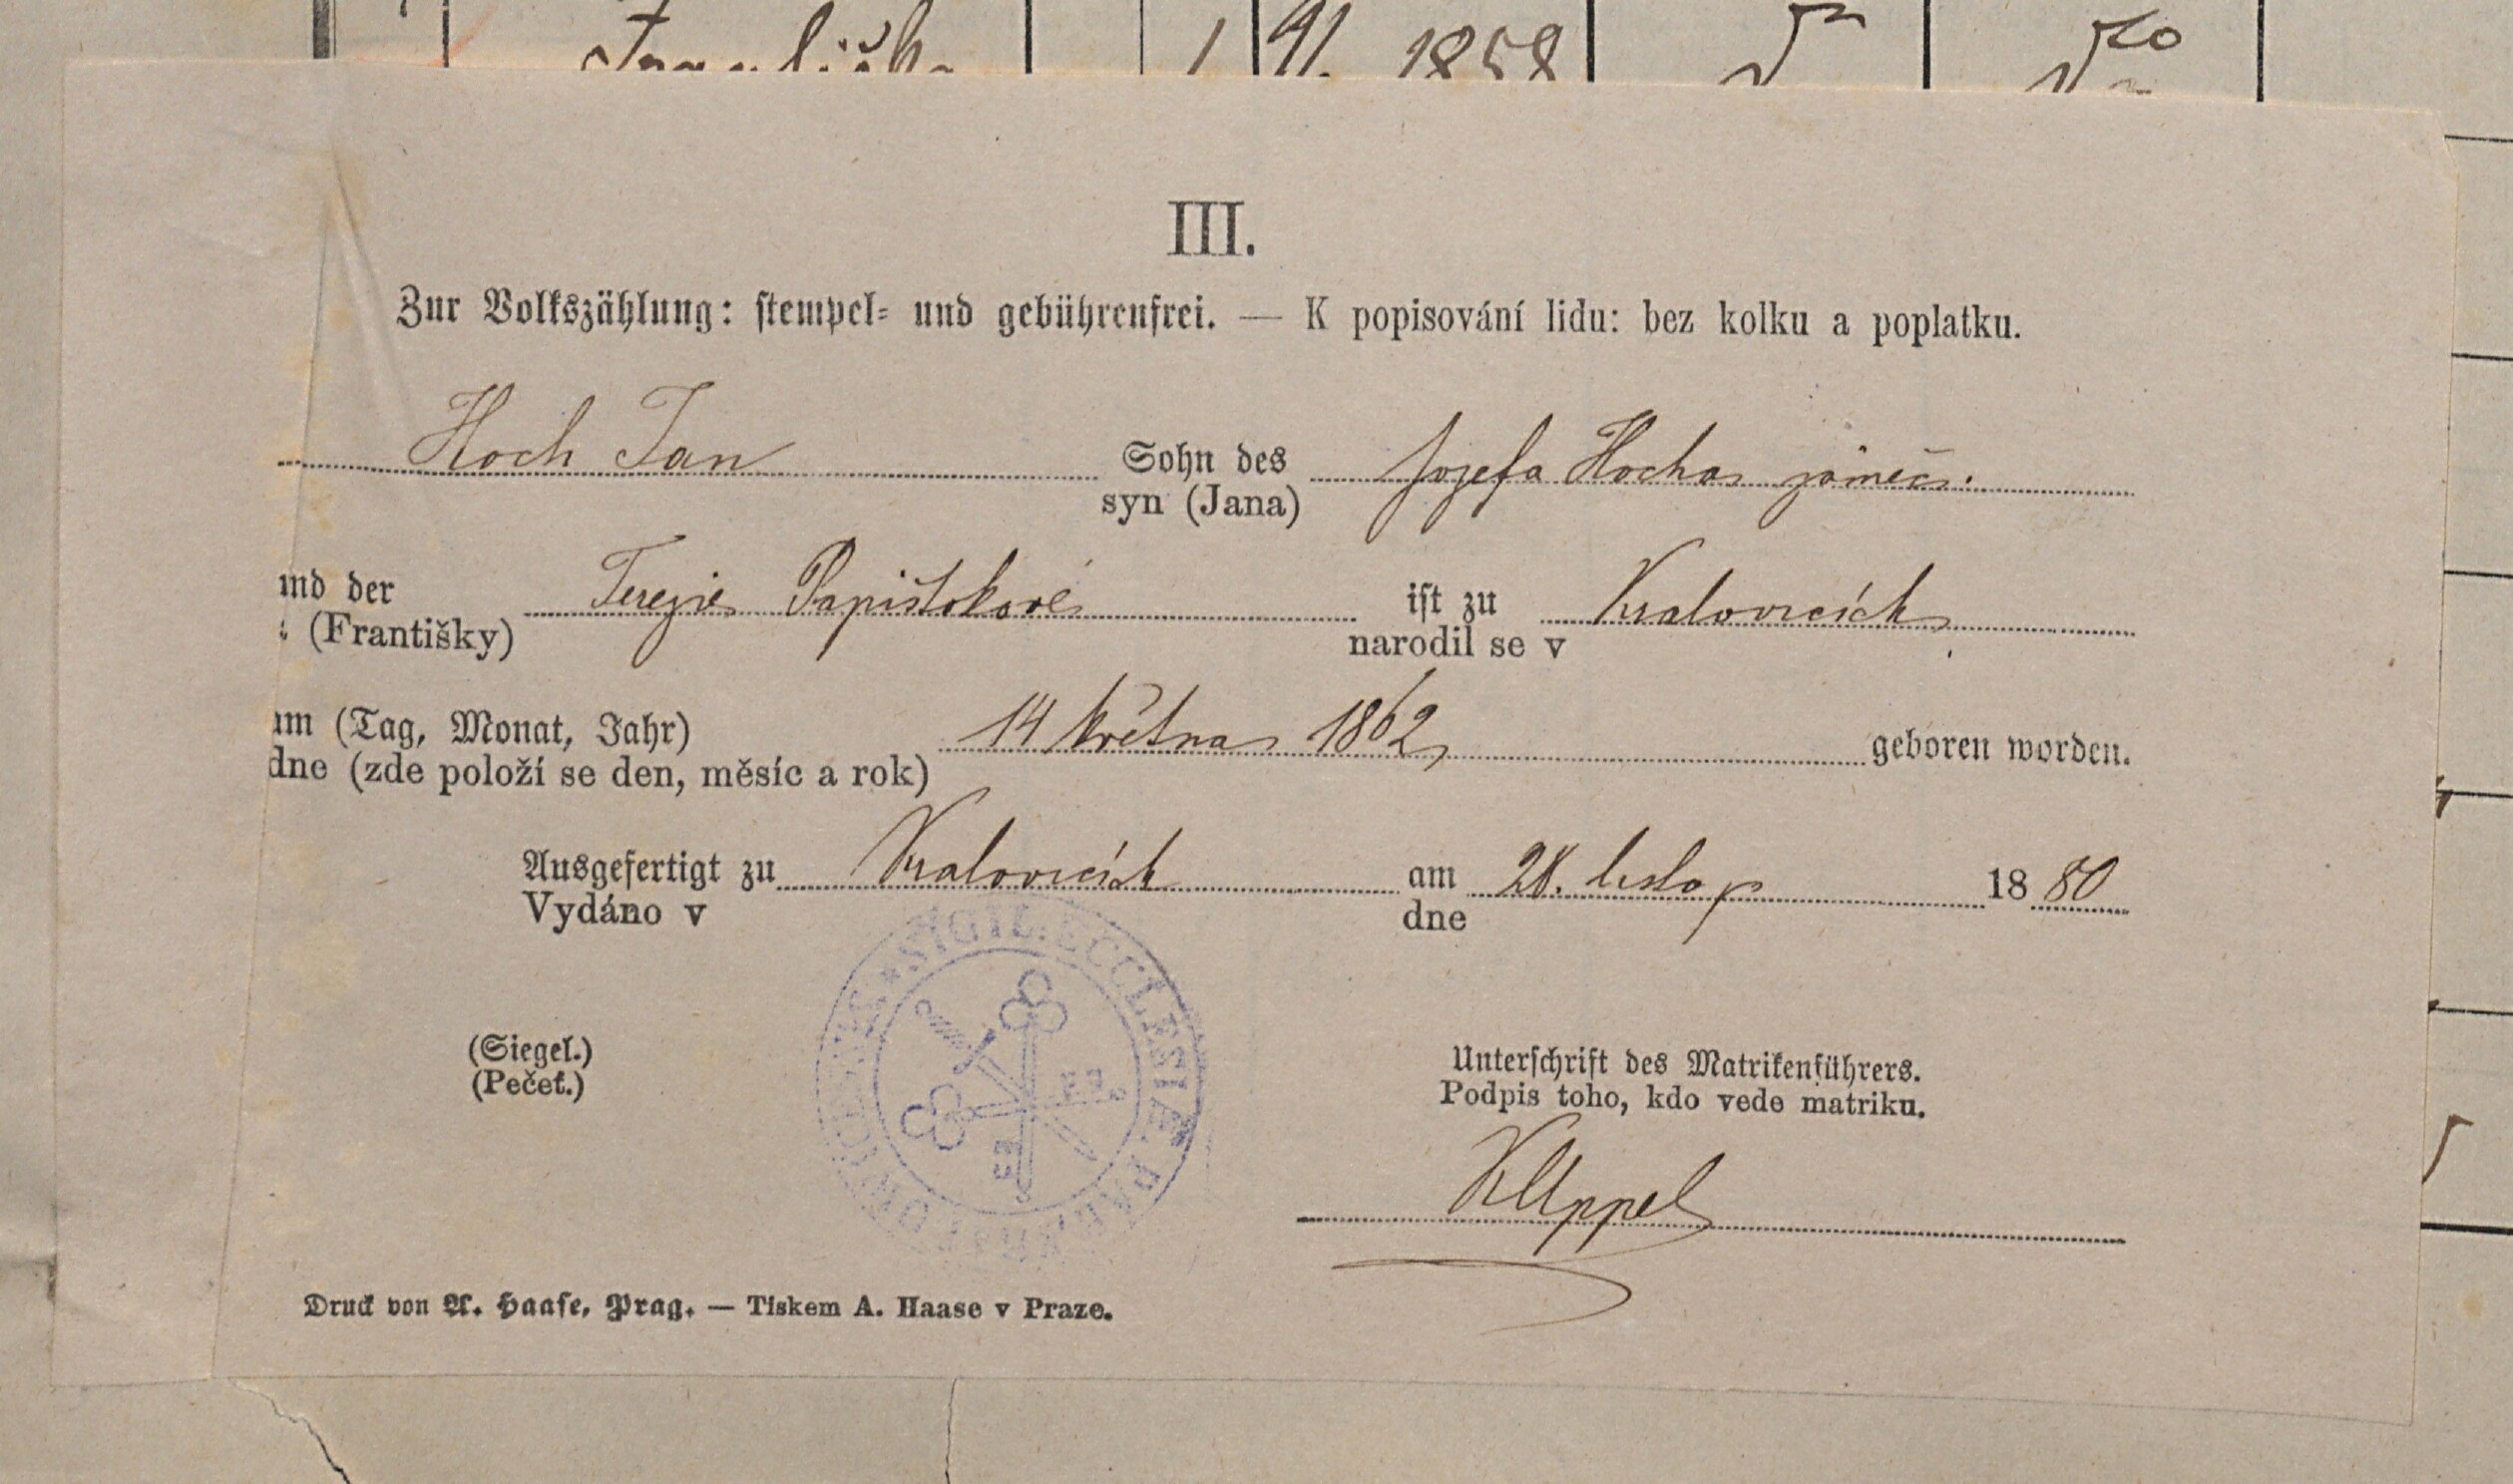 1 91. 1858
III.
Zur Volkszählung: stempel- und gebührenfrei. — K popisování lidu: bez kolku a poplatku.
Hoch Jan Sohn des Jozefa Hocha zámeč.
syn (Jana)
und der Terezie Papištokové ist zu Kralovicích
(Františky) narodil se v
am (Tag, Monat, Jahr) 14 května 1862 geboren worden.
dne (zde položí se den, měsíc a rok)
Ausgefertigt zu Kralovicích am 28. listop 1880
Vydáno v dne
SIGIL. ECCLESIAE
(Siegel.)
(Pečeť.)
Unterschrift des Matrikenführers.
Podpis toho, kdo vede matriku.
Druck von A. Haase, Prag. — Tiskem A. Haase v Praze.